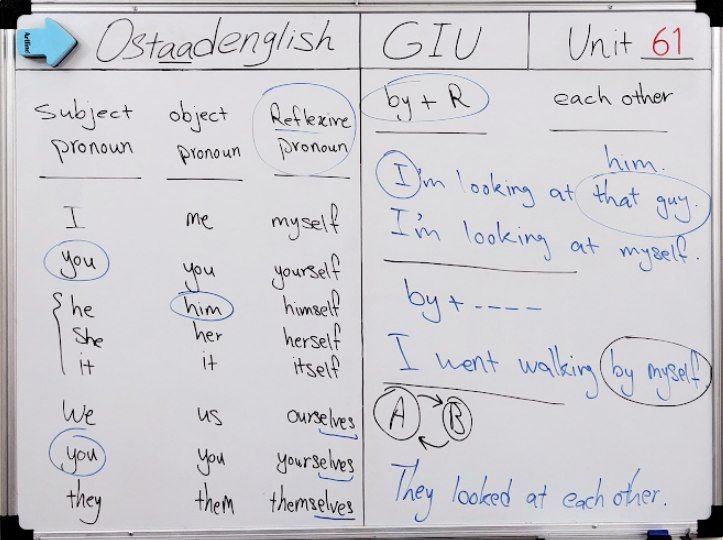 Ostaadenglish GIU Unit 61
Subject object Reflexive
pronoun pronoun pronoun
I me myself
you you yourself
he him himself
She her herself
it it itself
We us ourselves
you you yourselves
they them themselves
by + R each other
him.
I'm looking at that guy.
I'm looking at myself.
by + ----
I went walking by myself
A B
They looked at each other.